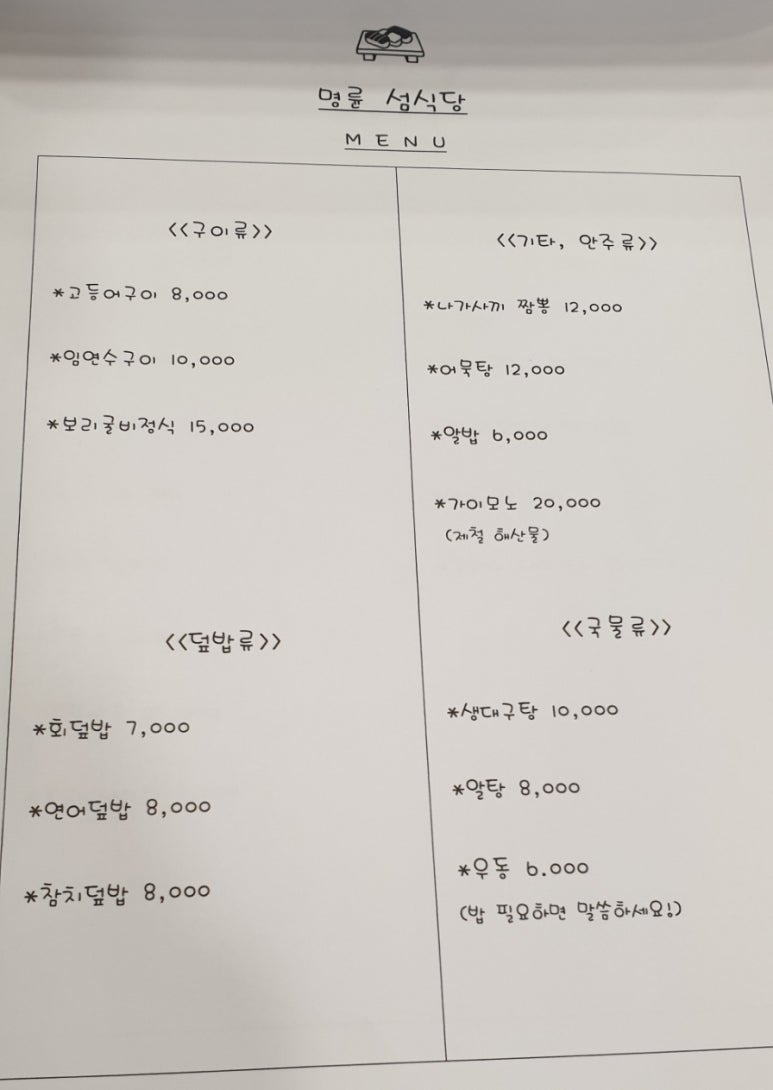 명륜 섬식당
MENU
<<구이류>>
*고등어구이 8,000
*임연수구이 10,000
*보리굴비정식 15,000
<<덮밥류>>
*회덮밥 7,000
*연어덮밥 8,000
*참치덮밥 8,000
<<기타, 안주류>>
*나가사끼 짬뽕 12,000
*어묵탕 12,000
*알밥 6,000
*가이모노 20,000
(제철 해산물)
<<국물류>>
*생대구탕 10,000
*알탕 8,000
*우동 6.000
(밥 필요하면 말씀하세요!)